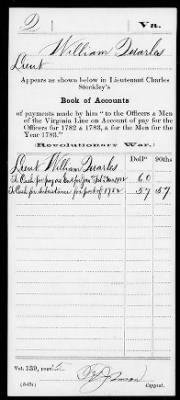 Q Va.
William Quarles
Lieut
Appears as shown below in Lieutenant Charles
Stockley's
Book of Accounts
of payments made by him "to the Officers & Men
of the Virginia Line on Account of pay for the
Officers for 1782 & 1783, & for the Men for the
Year 1783."
(Revolutionary War.)
Dolls 90ths
Lieut William Quarles
To Cash for pay as Lieut for Jan Feb 1782 60
To Cash for subsistence for part of 1782 57 57
Vol. 139, page
Copyist.